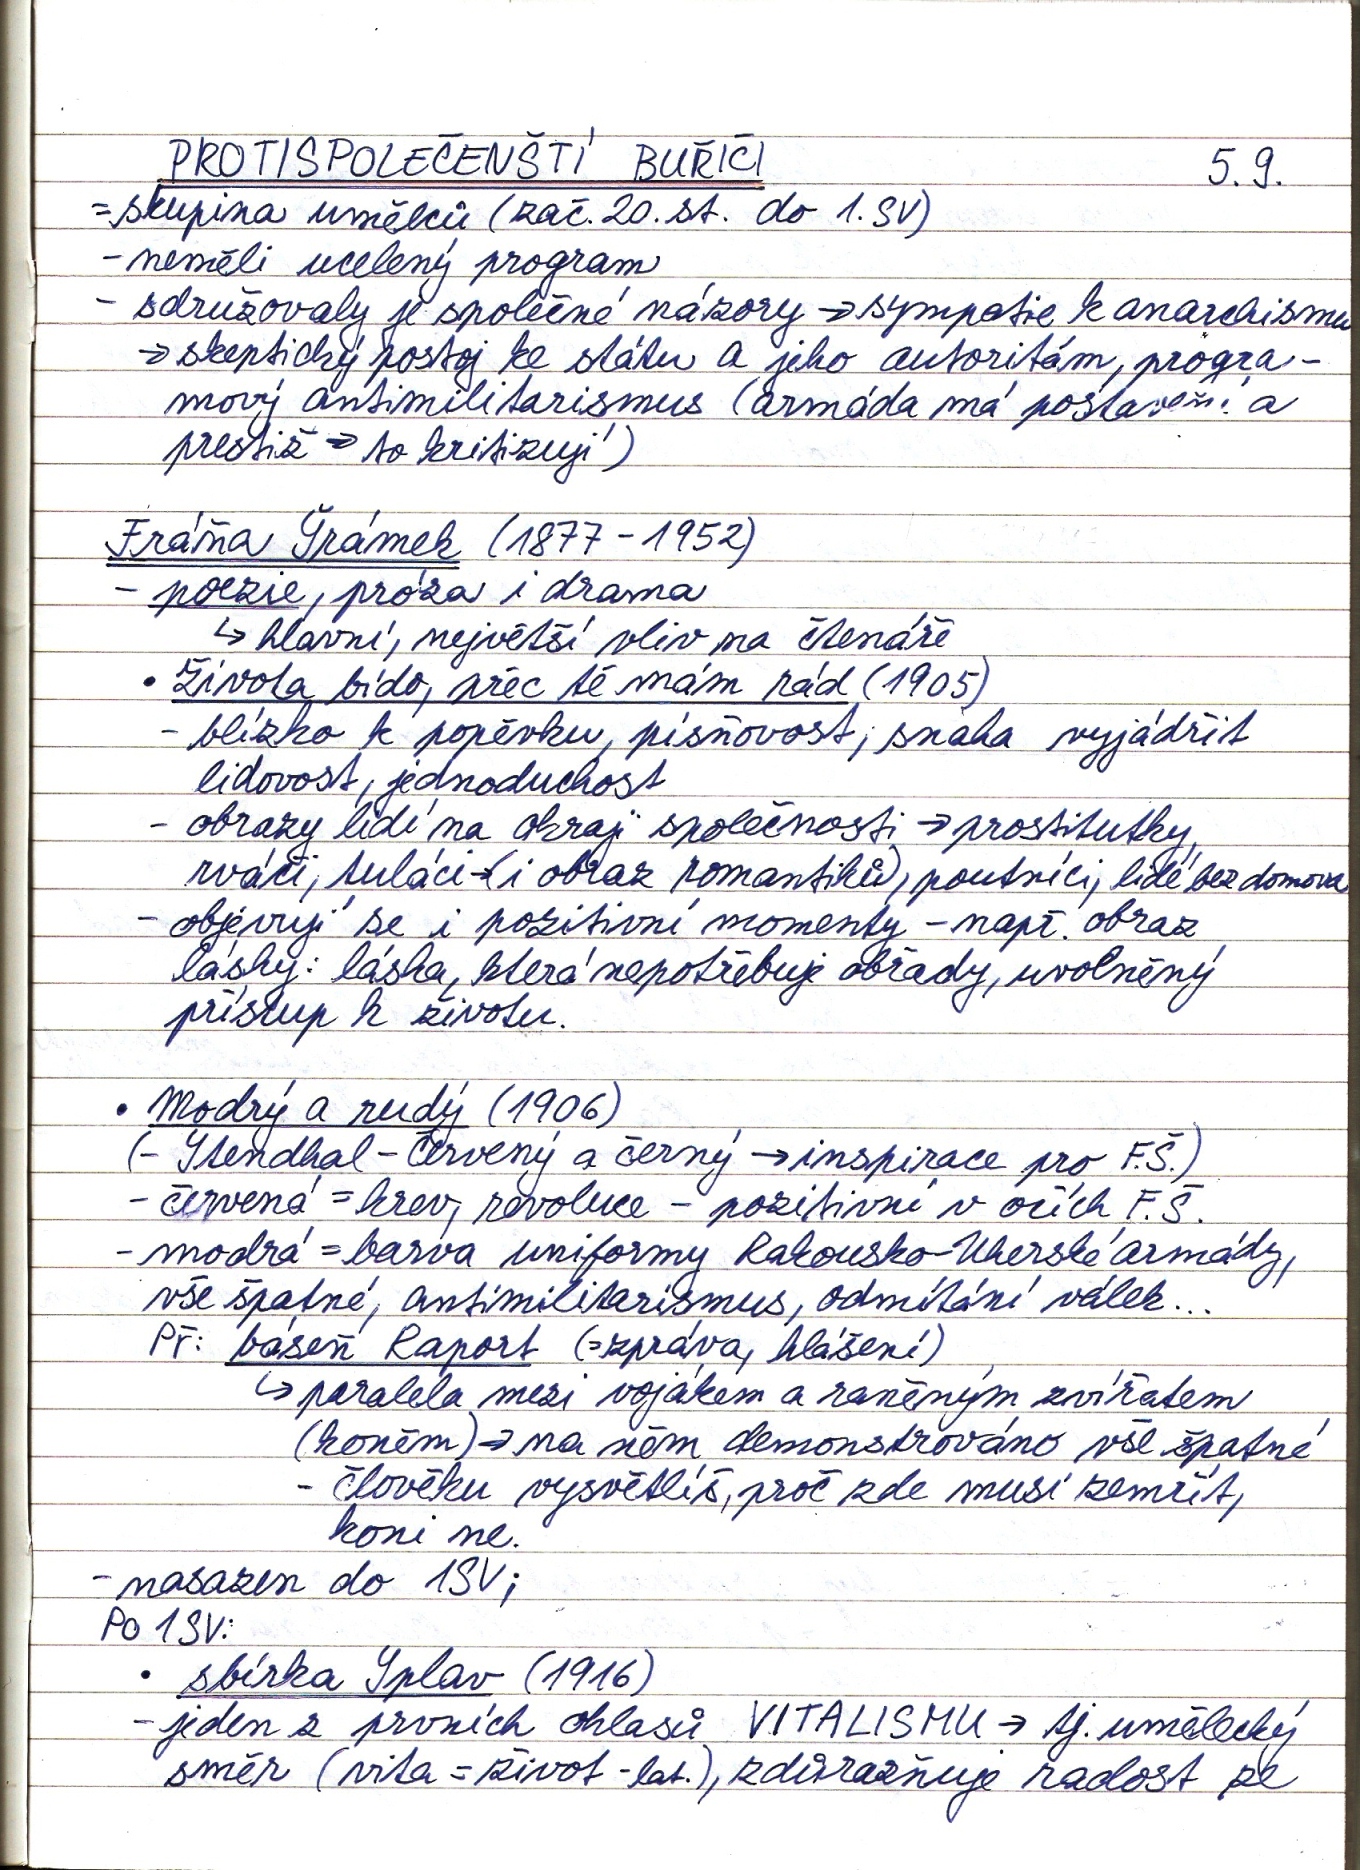 PROTISPOLEČENŠTÍ BUŘIČI 5.9.
= skupina umělců (zač. 20. st. do 1. SV)
- neměli ucelený program
- sdružovaly je společné názory → sympatie k anarchismu
→ skeptický postoj ke státu a jeho autoritám, progra-
mový antimilitarismus (armáda má postavení a
prestiž → to kritizují)
Fráňa Šrámek (1877 - 1952)
- poezie, próza i drama
↳ hlavní, největší vliv na čtenáře
• Života bído, přec tě mám rád (1905)
- blízko k popěvku, písňovost, snaha vyjádřit
lidovost, jednoduchost
- obrazy lidí na okraji společnosti → prostitutky,
rváči, tuláci → (i obraz romantiků), poutníci, lidé bez domova
- objevují se i pozitivní momenty - např. obraz
lásky: láska, která nepotřebuje obřady, uvolněný
přístup k životu.
• Modrý a rudý (1906)
(- Stendhal - Červený a černý → inspirace pro F.Š.)
- červená = krev, revoluce - pozitivní v očích F.Š.
- modrá = barva uniformy Rakousko-Uherské armády,
vše špatné, antimilitarismus, odmítání válek...
Př: báseň Raport (= zpráva, hlášení)
↳ paralela mezi vojákem a raněným zvířatem
(koněm) → na něm demonstrováno vše špatné
- člověku vysvětlíš, proč zde musí zemřít,
koni ne.
- nasazen do 1SV;
Po 1SV:
• sbírka Splav (1916)
- jeden z prvních ohlasů VITALISMU → tj. umělecký
směr (vita = život - lat.), zdůrazňuje radost ze